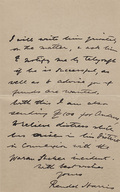 I will write him further
on the matter, & ask him
to notify me by telegraph
if he is successful, as
well as to advise you if
funds are wanted.
With this I am also
sending £100 for
to relieve distress which
has in his District
in connexion with the
incident.
With kind wishes
Yours
Harris